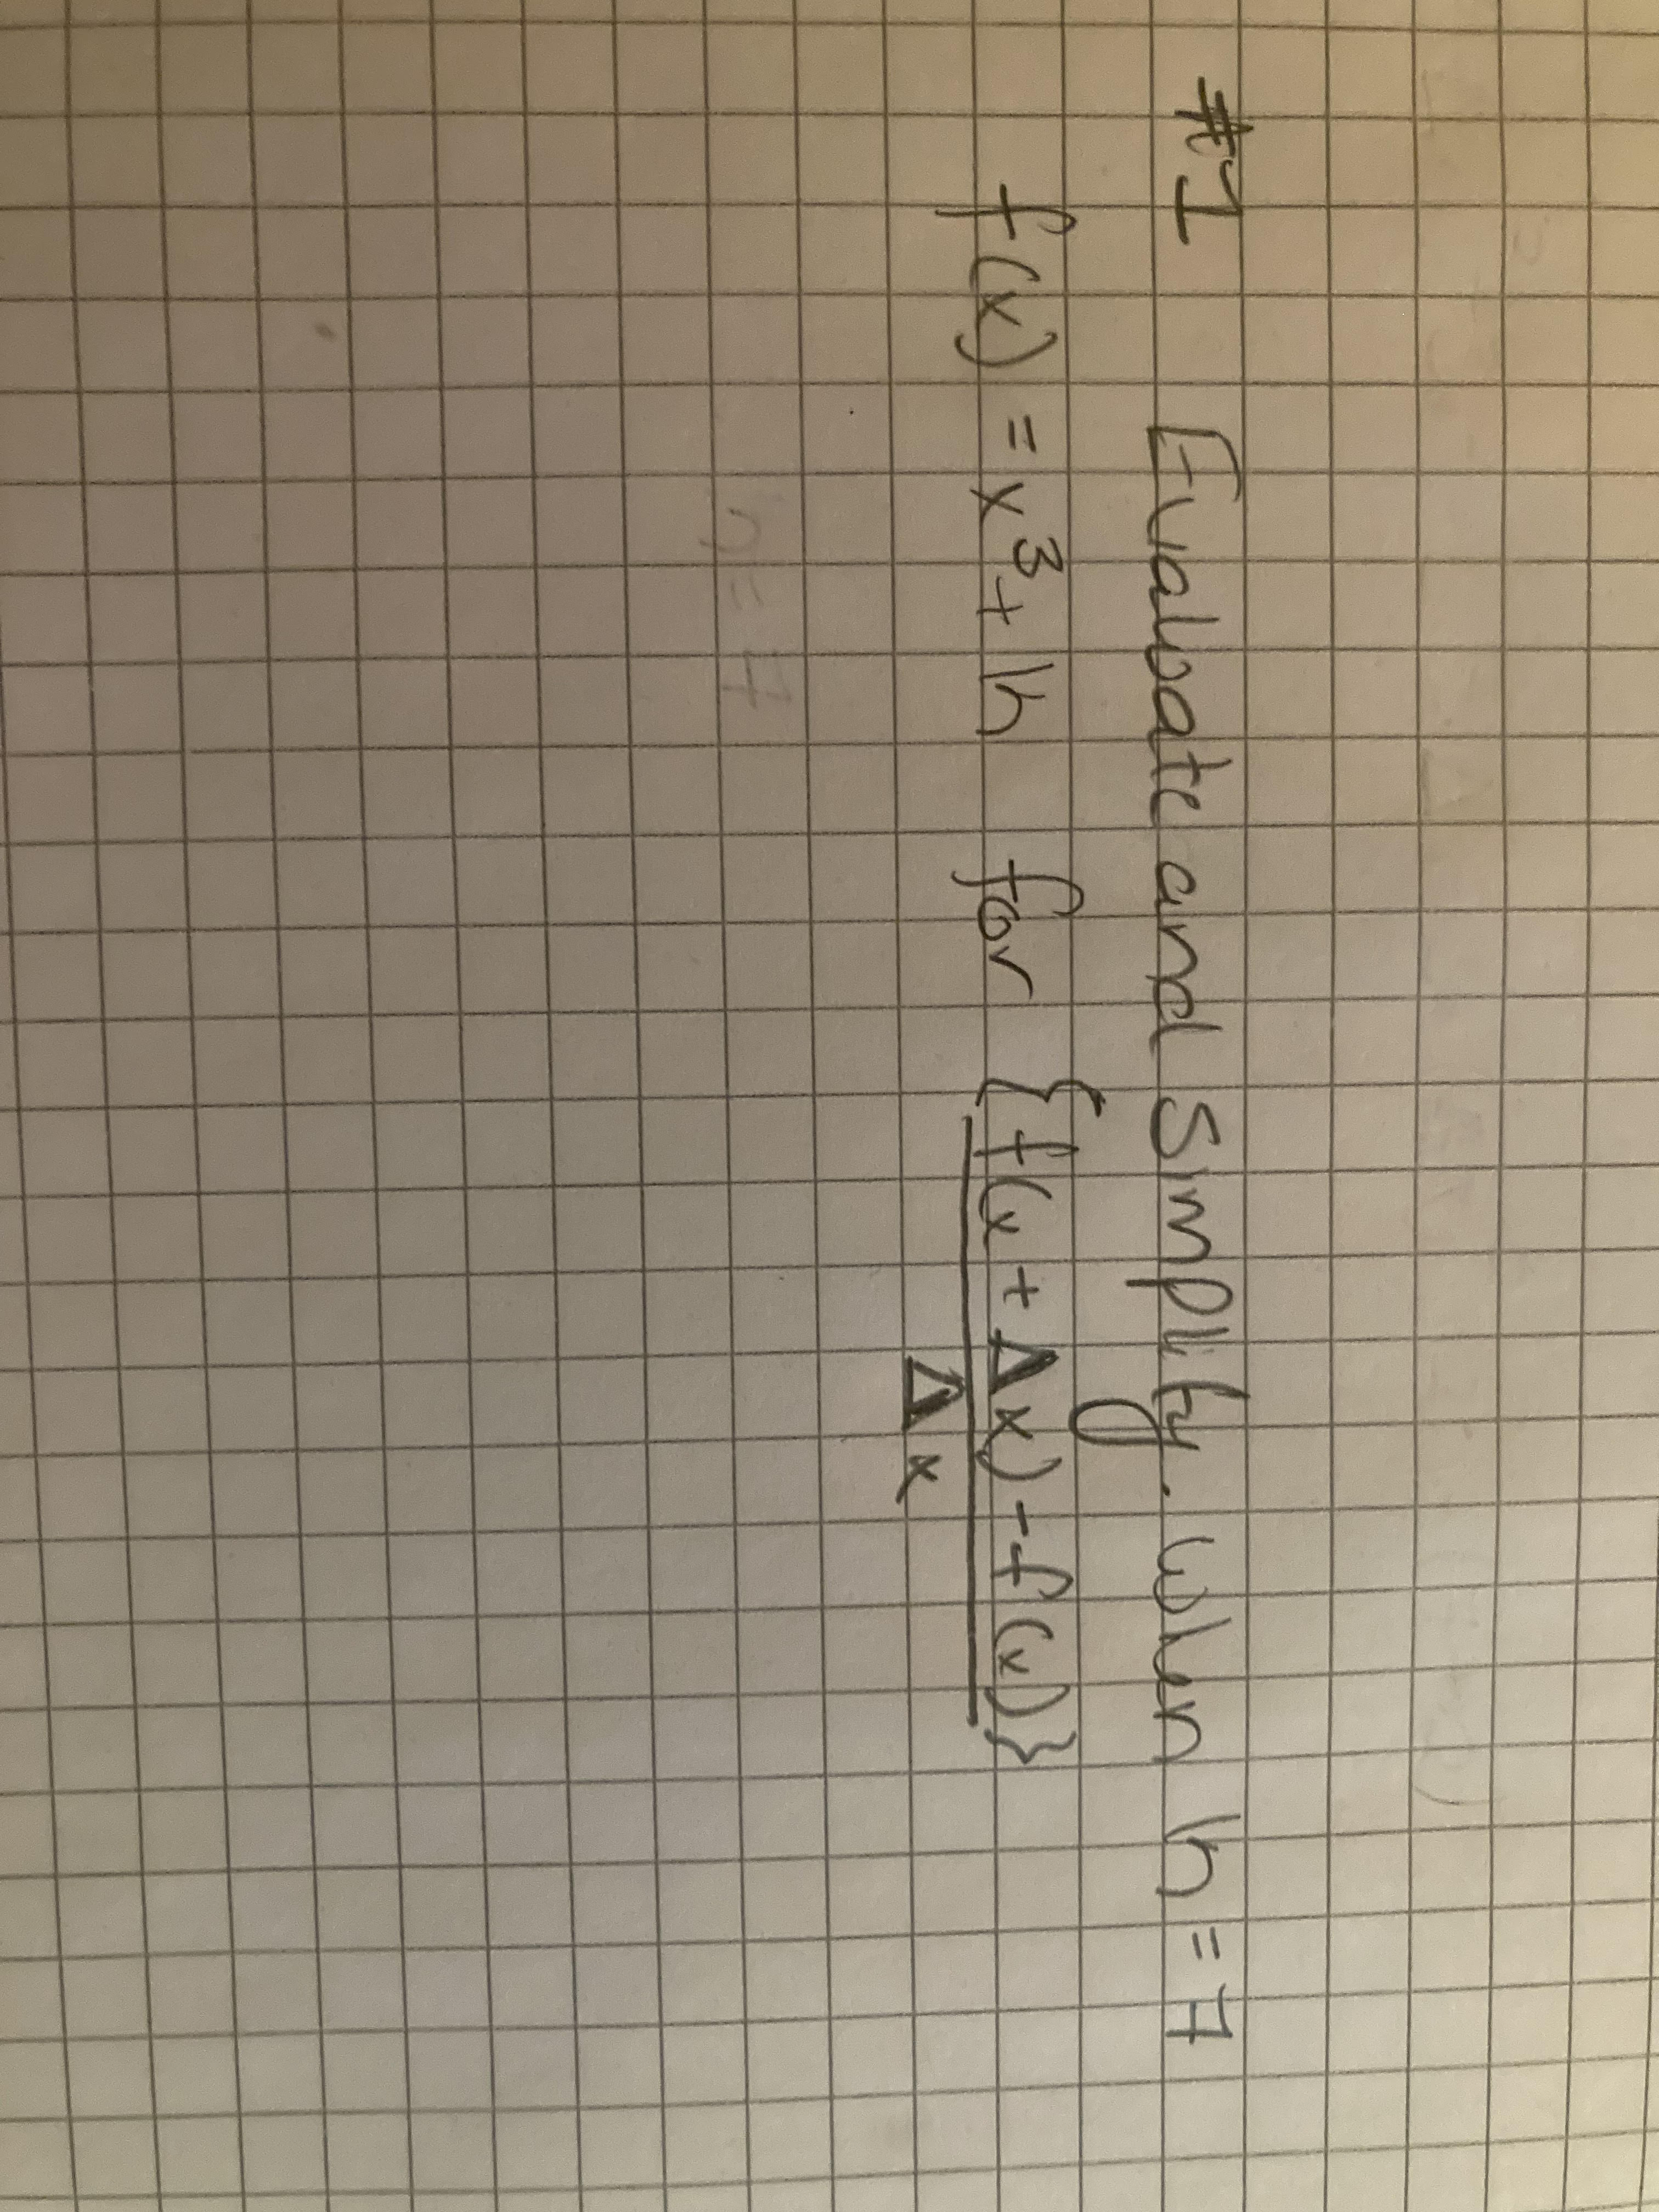 #1 Evaluate and Simplify. when h = 7
f(x) = x³ + h for {f(x + Δx) - f(x)}
Δx